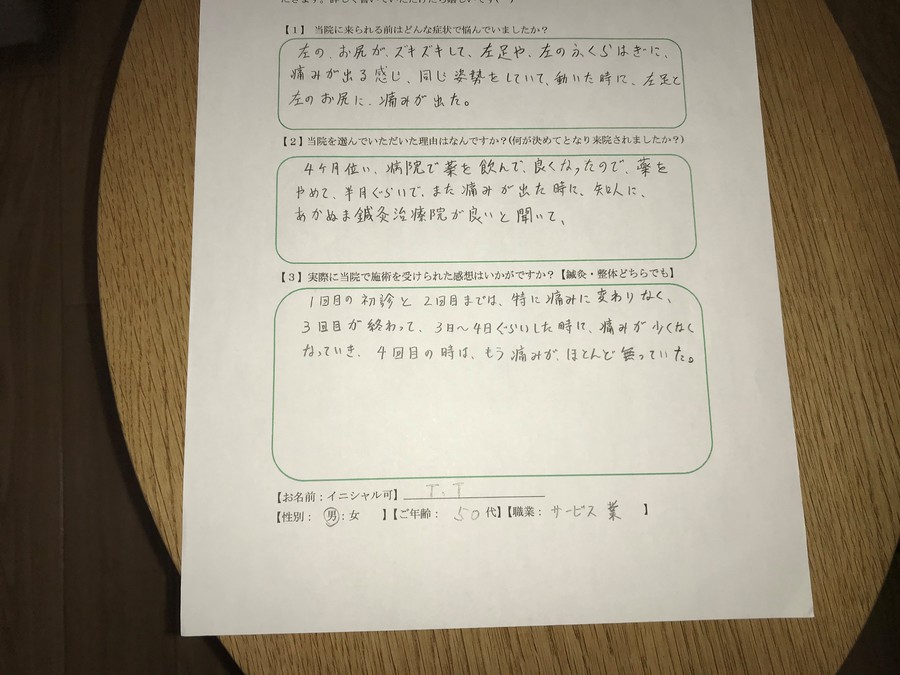 だきます。詳しく書いていただけたら嬉しいです(^^)
【1】 当院に来られる前はどんな症状で悩んでいましたか？
左の、お尻が、ズキズキして、左足や、左のふくらはぎに、
痛みが出る感じ、同じ姿勢をしていて、動いた時に、左足と
左のお尻に、痛みが出た。
【2】当院を選んでいただいた理由はなんですか？(何が決めてとなり来院されましたか？)
4ヶ月位い、病院で薬を飲んで、良くなったので、薬を
やめて、半月ぐらいで、また痛みが出た時に、知人に、
あかぬま鍼灸治療院が良いと聞いて、
【3】実際に当院で施術を受けられた感想はいかがですか？【鍼灸・整体どちらでも】
1回目の初診と2回目までは、特に痛みに変わりなく、
3回目が終わって、3日〜4日ぐらいした時に、痛みが少くなく
なっていき、4回目の時は、もう痛みが、ほとんど無っていた。
【お名前：イニシャル可】 T.T
【性別： 男：女 】【ご年齢： 50代】【職業： サービス業 】